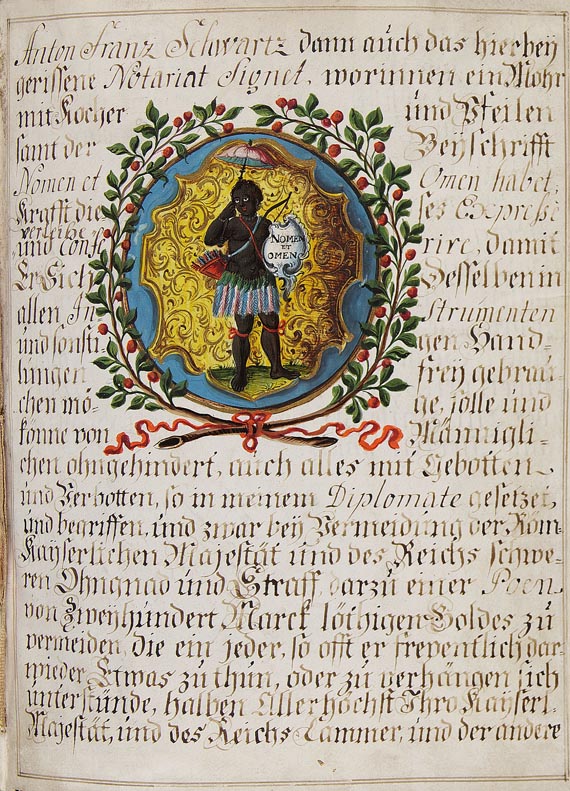 Anton Franz Schwartz dann auch das hierbey
gerissene Notariat Signet, worinnen ein Mohr
mit Kocher und Pfeilen
samt der Beyschrifft
Nomen et Omen habet,
Krafft dieses Expresse
verleihe
und conferire, damit
Er Sich Desselben in
allen Instrumenten
und sonsti gen Hand=
lungen frey gebrau=
chen mö= ge, solle und
könne von Männigli=
chen ohngehindert, auch alles mit Gebotten
und Verbotten, so in meinem Diplomate gesetzet,
und begriffen, und zwar bey Vermeidung der Röm.
Kayserlichen Majestät und des Reichs schwe=
ren Ohngnad und Straff, darzu einer Poen
von Zweyhundert Marck löthigen Goldes zu
vermeiden, die ein jeder, so offt er freventlich dar=
wieder Etwas zu thun, oder zu verhängen sich
unterstünde, halben Allerhöchst Ihro Kayserl.
Majestät, und des Reichs Cammer, und der andere
NOMEN
ET
OMEN